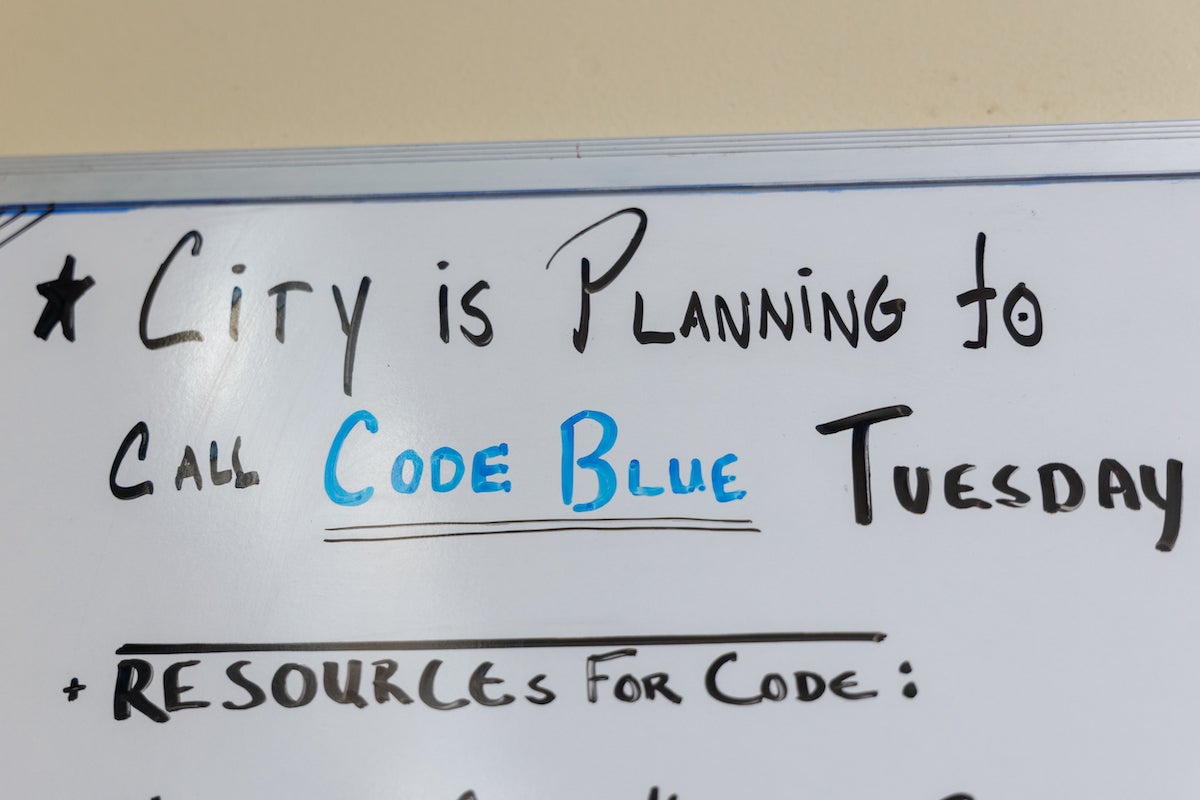 ★ City is Planning to
Call Code Blue Tuesday
+ Resources For Code: